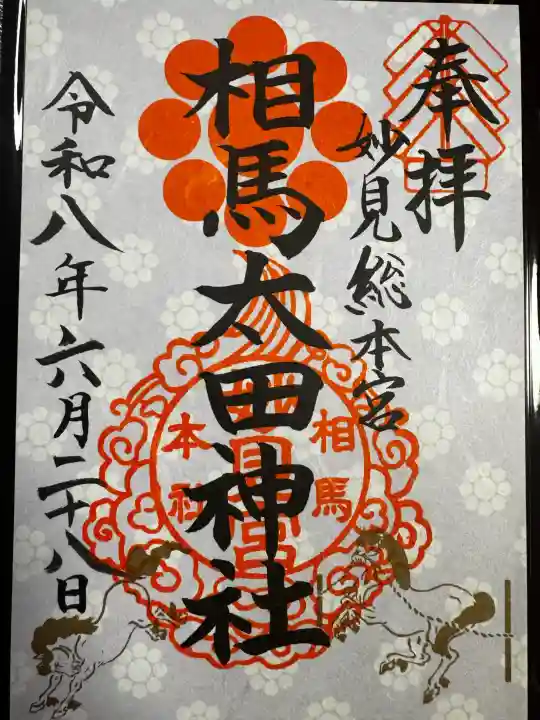 奉拝
妙見総本宮
相馬太田神社
相馬
本社
令和八年六月二十八日